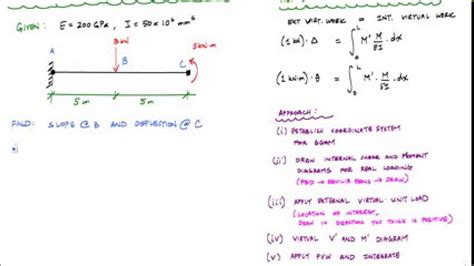 GIVEN : E = 200 GPa , I = 50 x 10⁶ mm⁴
3kN
5kN·m
A
B
C
5m
5m
FIND: SLOPE @ B AND DEFLECTION @ C
EXT VIRT. WORK = INT. VIRTUAL WORK
(1 kN) · Δ = ∫₀ᴸ M' · M/EI · dx
(1 kN·m) · θ = ∫₀ᴸ M' · M/EI · dx
APPROACH :
(i) ESTABLISH COORDINATE SYSTEM
FOR BEAM
(ii) DRAW INTERNAL SHEAR AND MOMENT
DIAGRAMS FOR REAL LOADING
(FBD → EQUILIB EQNS → DRAW)
(iii) APPLY EXTERNAL VIRTUAL UNIT LOAD
(LOCATION OF INTEREST,
DRAW IN DIRECTION YOU THINK IS POSITIVE)
(iv) VIRTUAL V' AND M' DIAGRAM
(v) APPLY PVW AND INTEGRATE